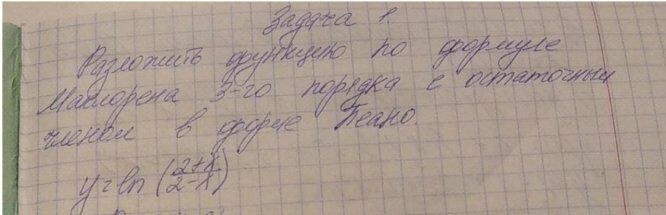 Задача 1
Разложить функцию по формуле
Маклорена 3-го порядка с остаточным
членом в форме Пеано.
y = ln (2+x/2-x)